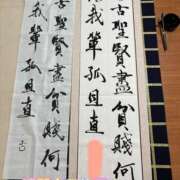 古聖賢盡貧賤何
我輩孤且直
古聖賢盡貧賤何
我輩孤且直